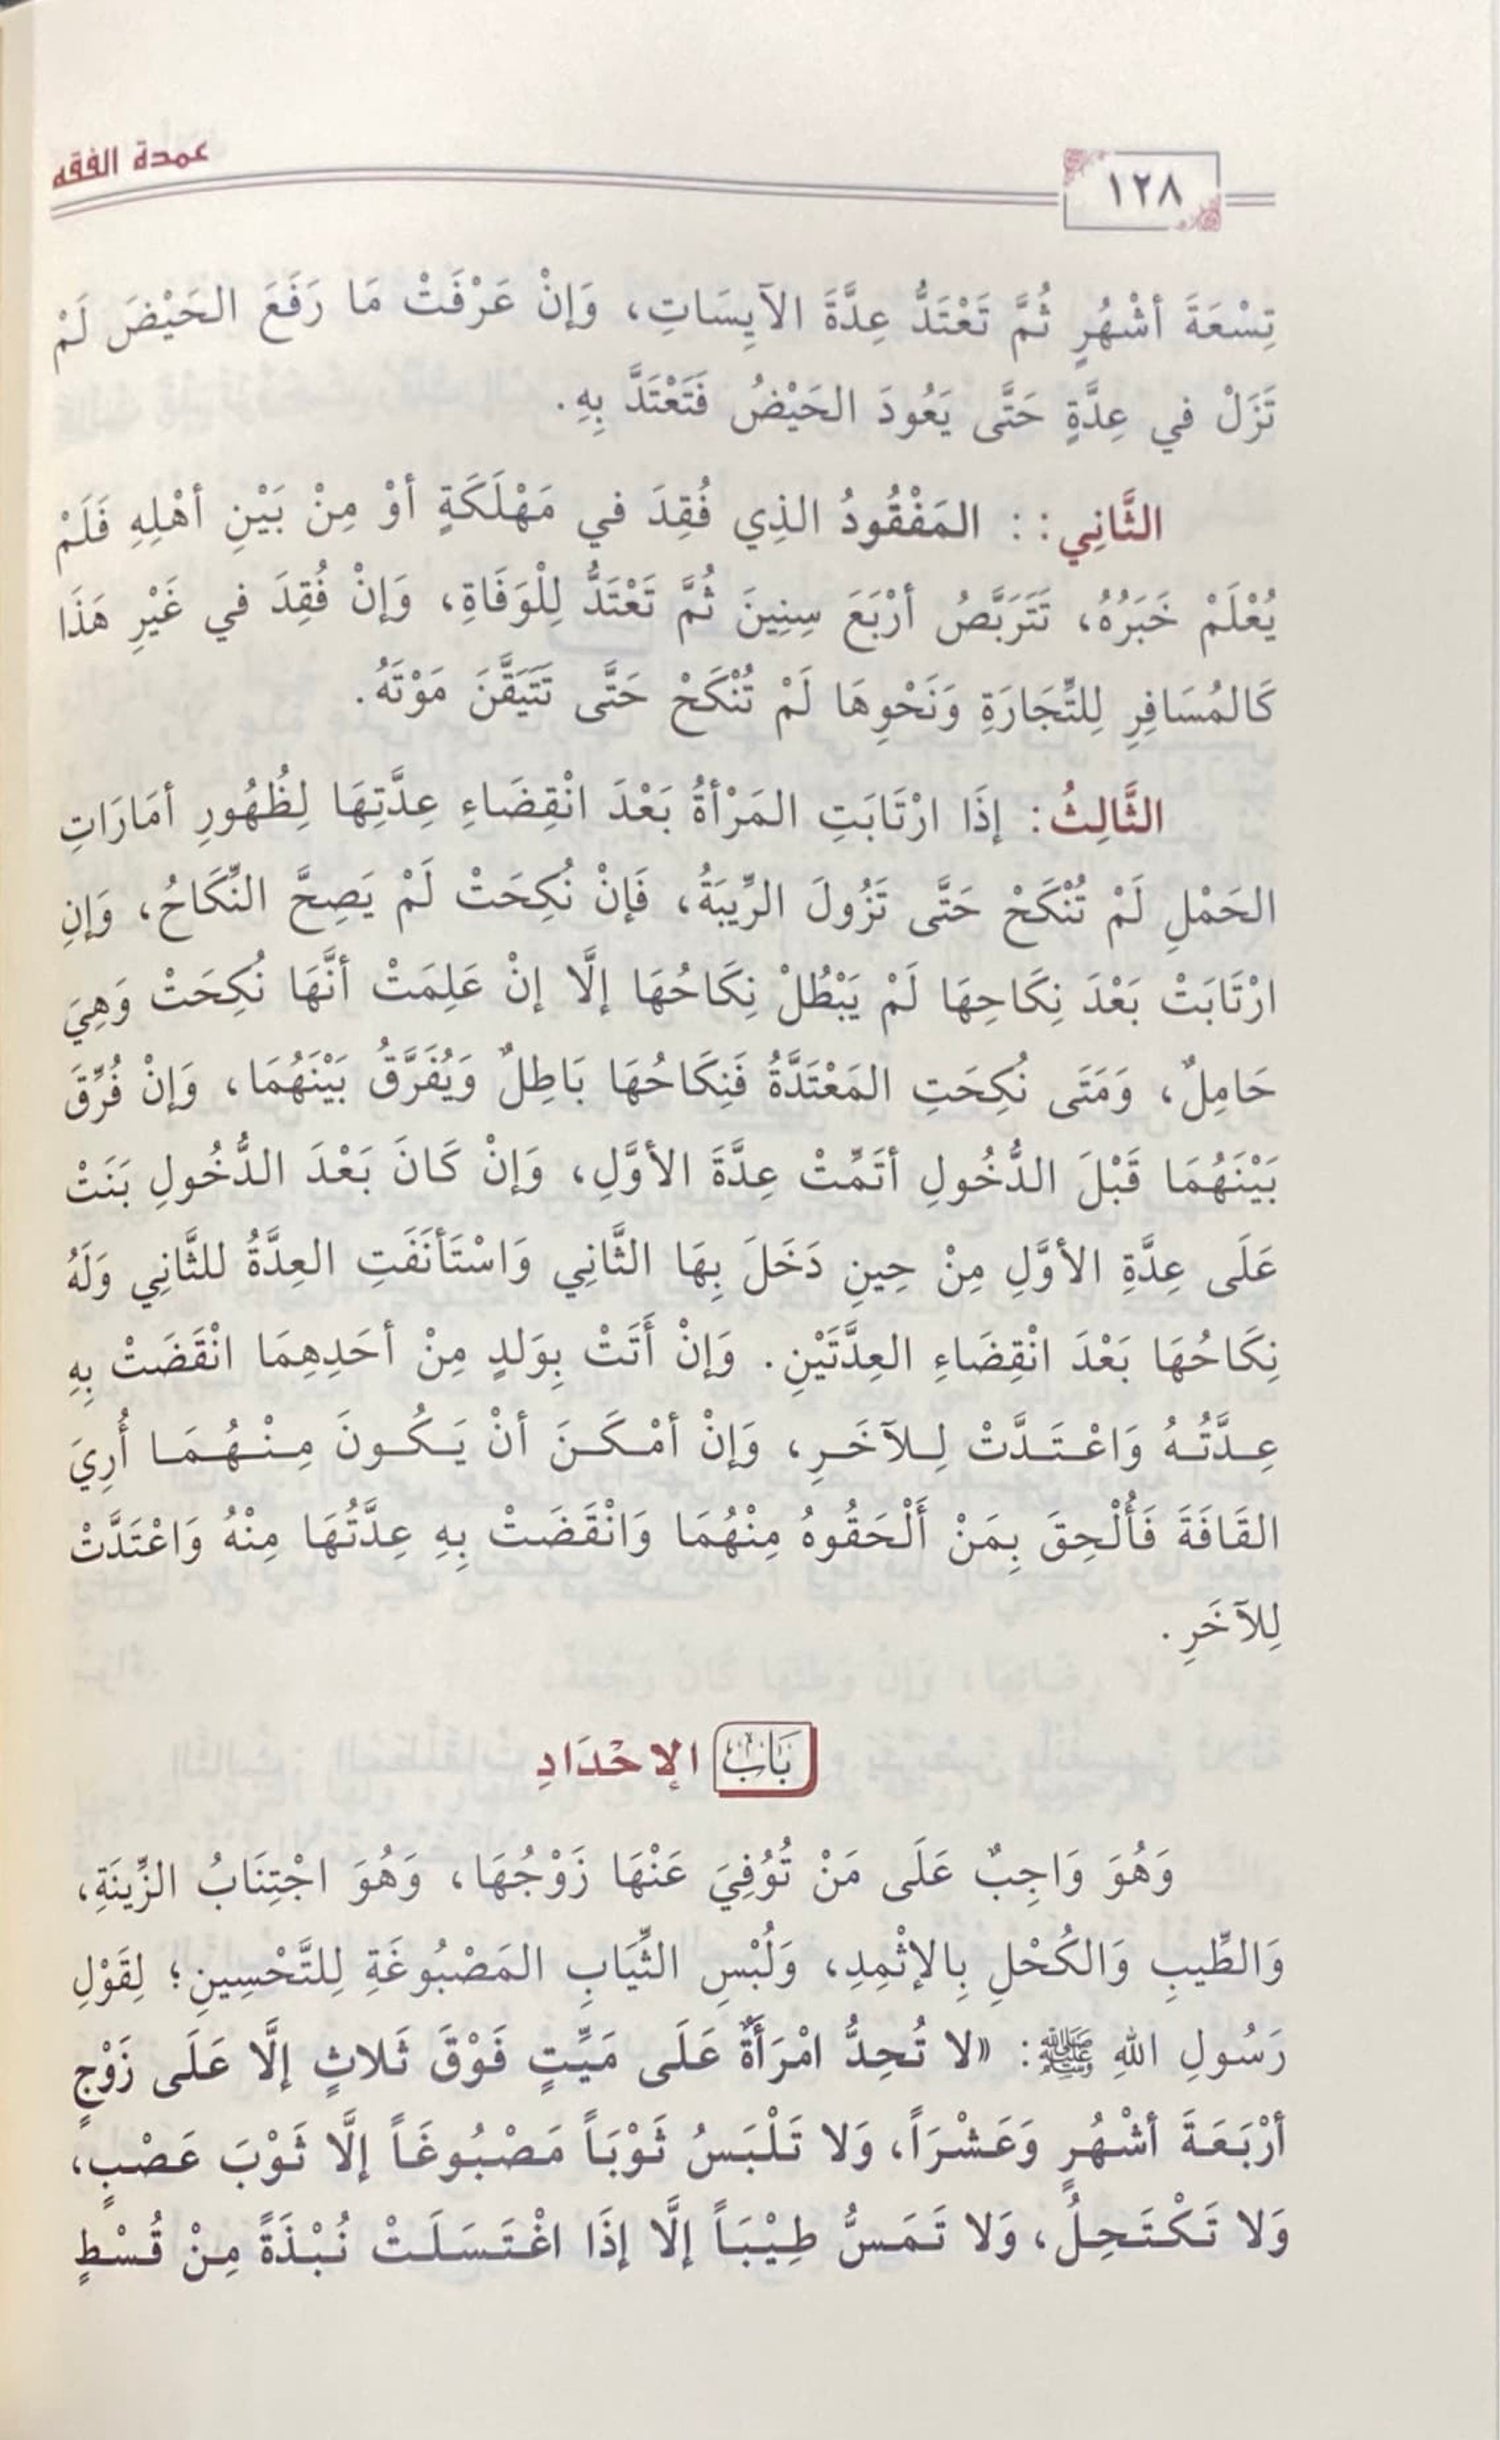 عمدة الفقه
١٢٨
تِسْعَةَ أشْهُرٍ ثُمَّ تَعْتَدُّ عِدَّةَ الآيِسَاتِ، وَإنْ عَرْفَتْ مَا رَفَعَ الحَيْضَ لَمْ
تَزَلْ في عِدَّةٍ حَتَّى يَعُودَ الحَيْضُ فَتَعْتَدَّ بِهِ.
الثَّانِي: : المَفْقُودُ الذِي فُقِدَ في مَهْلَكَةٍ أوْ مِنْ بَيْنِ أهْلِهِ فَلَمْ
يُعْلَمْ خَبَرُهُ، تَتَرَبَّصُ أرْبَعَ سِنِينَ ثُمَّ تَعْتَدُّ لِلْوَفَاةِ، وَإنْ فُقِدَ في غَيْرِ هَذَا
كَالمُسَافِرِ لِلتِّجَارَةِ وَنَحْوِهَا لَمْ تُنْكَحْ حَتَّى تَتَيَقَّنَ مَوْتَهُ.
الثَّالِثُ: إذَا ارْتَابَتِ المَرْأةُ بَعْدَ انْقِضَاءِ عِدَّتِهَا لِظُهُورِ أمَارَاتِ
الحَمْلِ لَمْ تُنْكَحْ حَتَّى تَزُولَ الرِّيبَةُ، فَإنْ نُكِحَتْ لَمْ يَصِحَّ النِّكَاحُ، وَإنِ
ارْتَابَتْ بَعْدَ نِكَاحِهَا لَمْ يَبْطُلْ نِكَاحُهَا إلَّا إنْ عَلِمَتْ أنَّهَا نُكِحَتْ وَهِيَ
حَامِلٌ، وَمَتَى نُكِحَتِ المَعْتَدَّةُ فَنِكَاحُهَا بَاطِلٌ وَيُفَرَّقُ بَيْنَهُمَا، وَإنْ فُرِّقَ
بَيْنَهُمَا قَبْلَ الدُّخُولِ أتَمِّتْ عِدَّةَ الأوَّلِ، وَإنْ كَانَ بَعْدَ الدُّخُولِ بَنَتْ
عَلَى عِدَّةِ الأوَّلِ مِنْ حِينِ دَخَلَ بِهَا الثَّانِي وَاسْتَأنَفَتِ العِدَّةُ للثَّانِي وَلَهُ
نِكَاحُهَا بَعْدَ انْقِضَاءِ العِدَّتَيْنِ. وَإنْ أَتَتْ بِوَلَدٍ مِنْ أحَدِهِمَا انْقَضَتْ بِهِ
عِدَّتُهُ وَاعْتَدَّتْ لِلآخَرِ، وَإنْ أمْكَنَ أنْ يَكُونَ مِنْهُمَا أُرِيَ
القَافَةَ فَأُلْحِقَ بِمَنْ أَلْحَقُوهُ مِنْهُمَا وَانْقَضَتْ بِهِ عِدَّتُهَا مِنْهُ وَاعْتَدَّتْ
لِلآخَرِ.
بَابُ الإحْدَادِ
وَهُوَ وَاجِبٌ عَلَى مَنْ تُوُفِيَ عَنْهَا زَوْجُهَا، وَهُوَ اجْتِنَابُ الزِّينَةِ،
وَالطِّيبِ وَالكُحْلِ بِالإثْمِدِ، وَلُبْسِ الثِّيَابِ المَصْبُوغَةِ لِلتَّحْسِينِ؛ لِقَوْلِ
رَسُولِ اللهِ ﷺ: «لا تُحِدُّ امْرَأَةٌ عَلَى مَيِّتٍ فَوْقَ ثَلاثٍ إلَّا عَلَى زَوْجٍ
أرْبَعَةَ أشْهُرٍ وَعَشْرَاً، وَلا تَلْبَسُ ثَوْبَاً مَصْبُوغَاً إلَّا ثَوْبَ عَصْبٍ،
وَلا تَكْتَحِلُ، وَلا تَمَسُّ طِيْبَاً إلَّا إذَا اغْتَسَلَتْ نُبْذَةً مِنْ قُسْطٍ